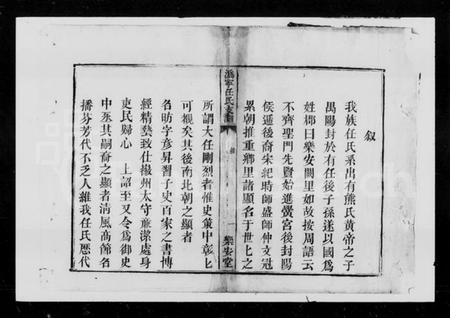 敘
我族任氏系出有熊氏黃帝之子
禹陽封於有任後子孫遂以國爲
姓郡曰樂安關里如故按周語云
不齊聖門先賢始進黌宮後封陽
侯遞後裔宋紀時師盛師仲文冠
累朝推重鄉里諸顯名于世七之
任氏支譜
樂安堂
所謂大任剛烈者惟史策中彰七
可覩矣其後南北朝之顯者
名昉字彥昇習子史百家之書博
經精藝致仕揚州太守廉潔處身
吏民歸心 上詔至又令爲御史
中丞其嗣裔之顯者清風高節名
播芬芳代不乏人維我任氏歷代